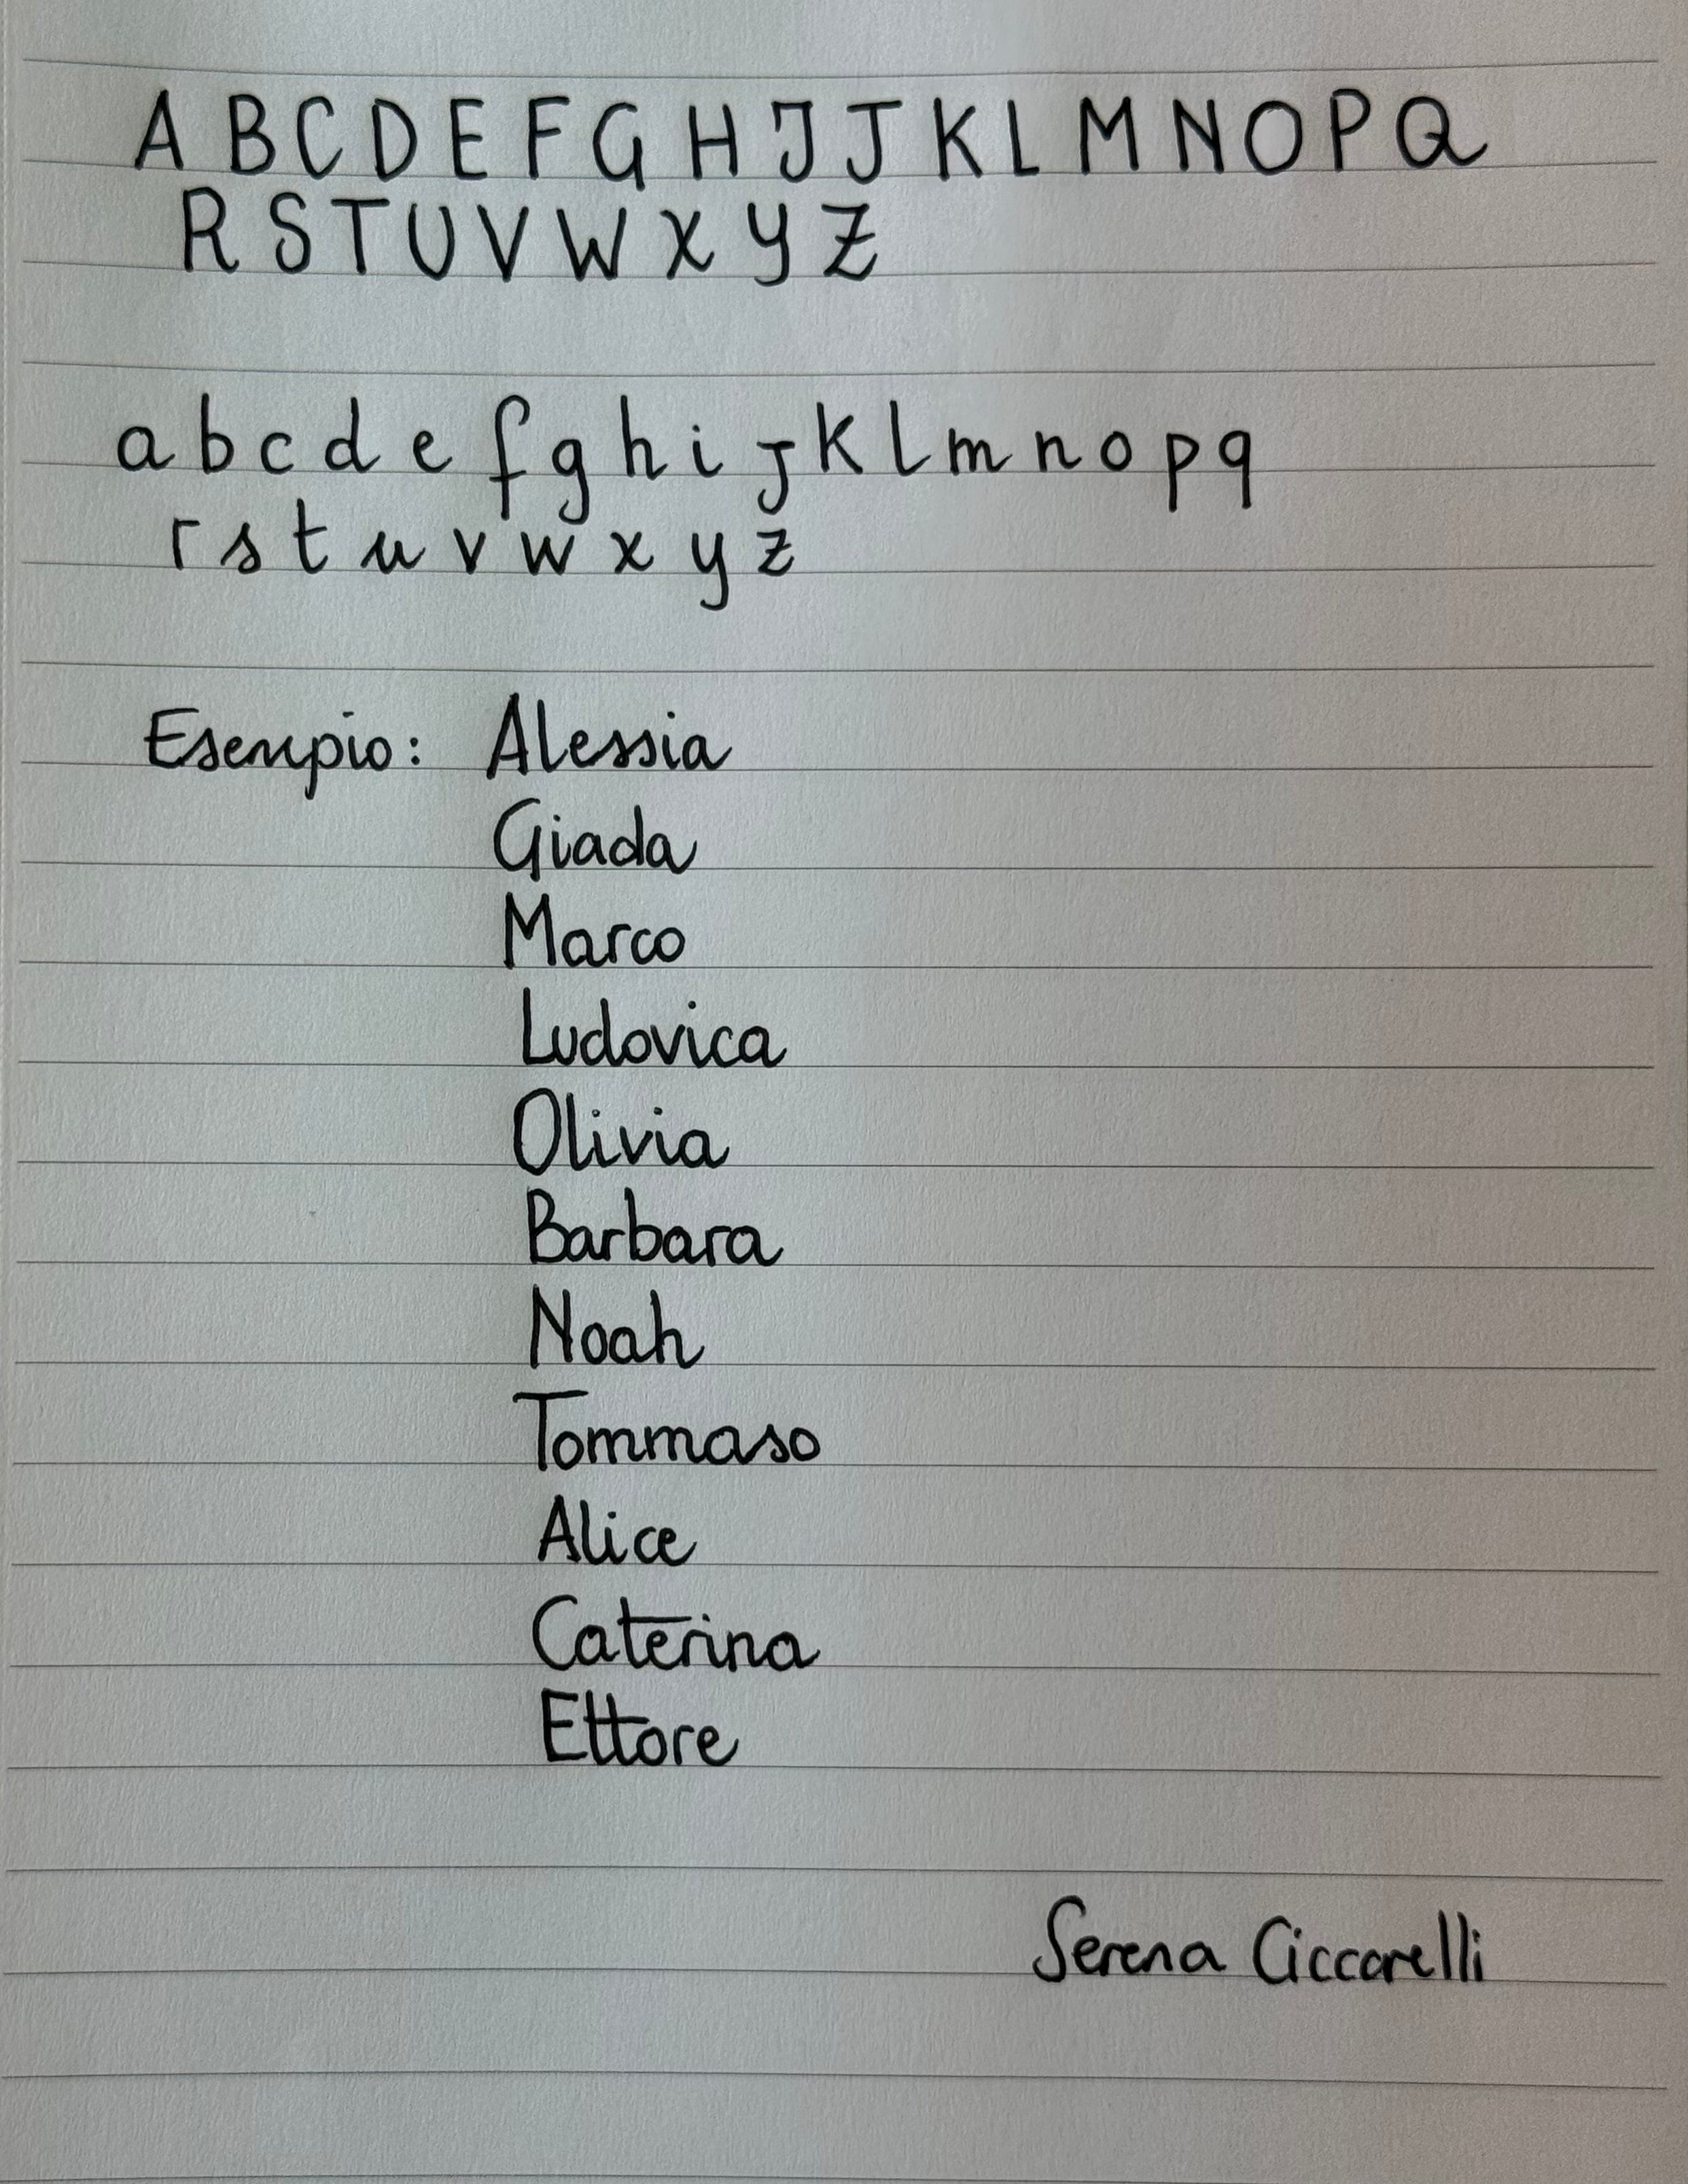 A B C D E F G H I J K L M N O P Q
R S T U V W X Y Z
a b c d e f g h i j k l m n o p q
r s t u v w x y z
Esempio: Alessia
Giada
Marco
Ludovica
Olivia
Barbara
Noah
Tommaso
Alice
Caterina
Ettore
Serena Ciccarelli